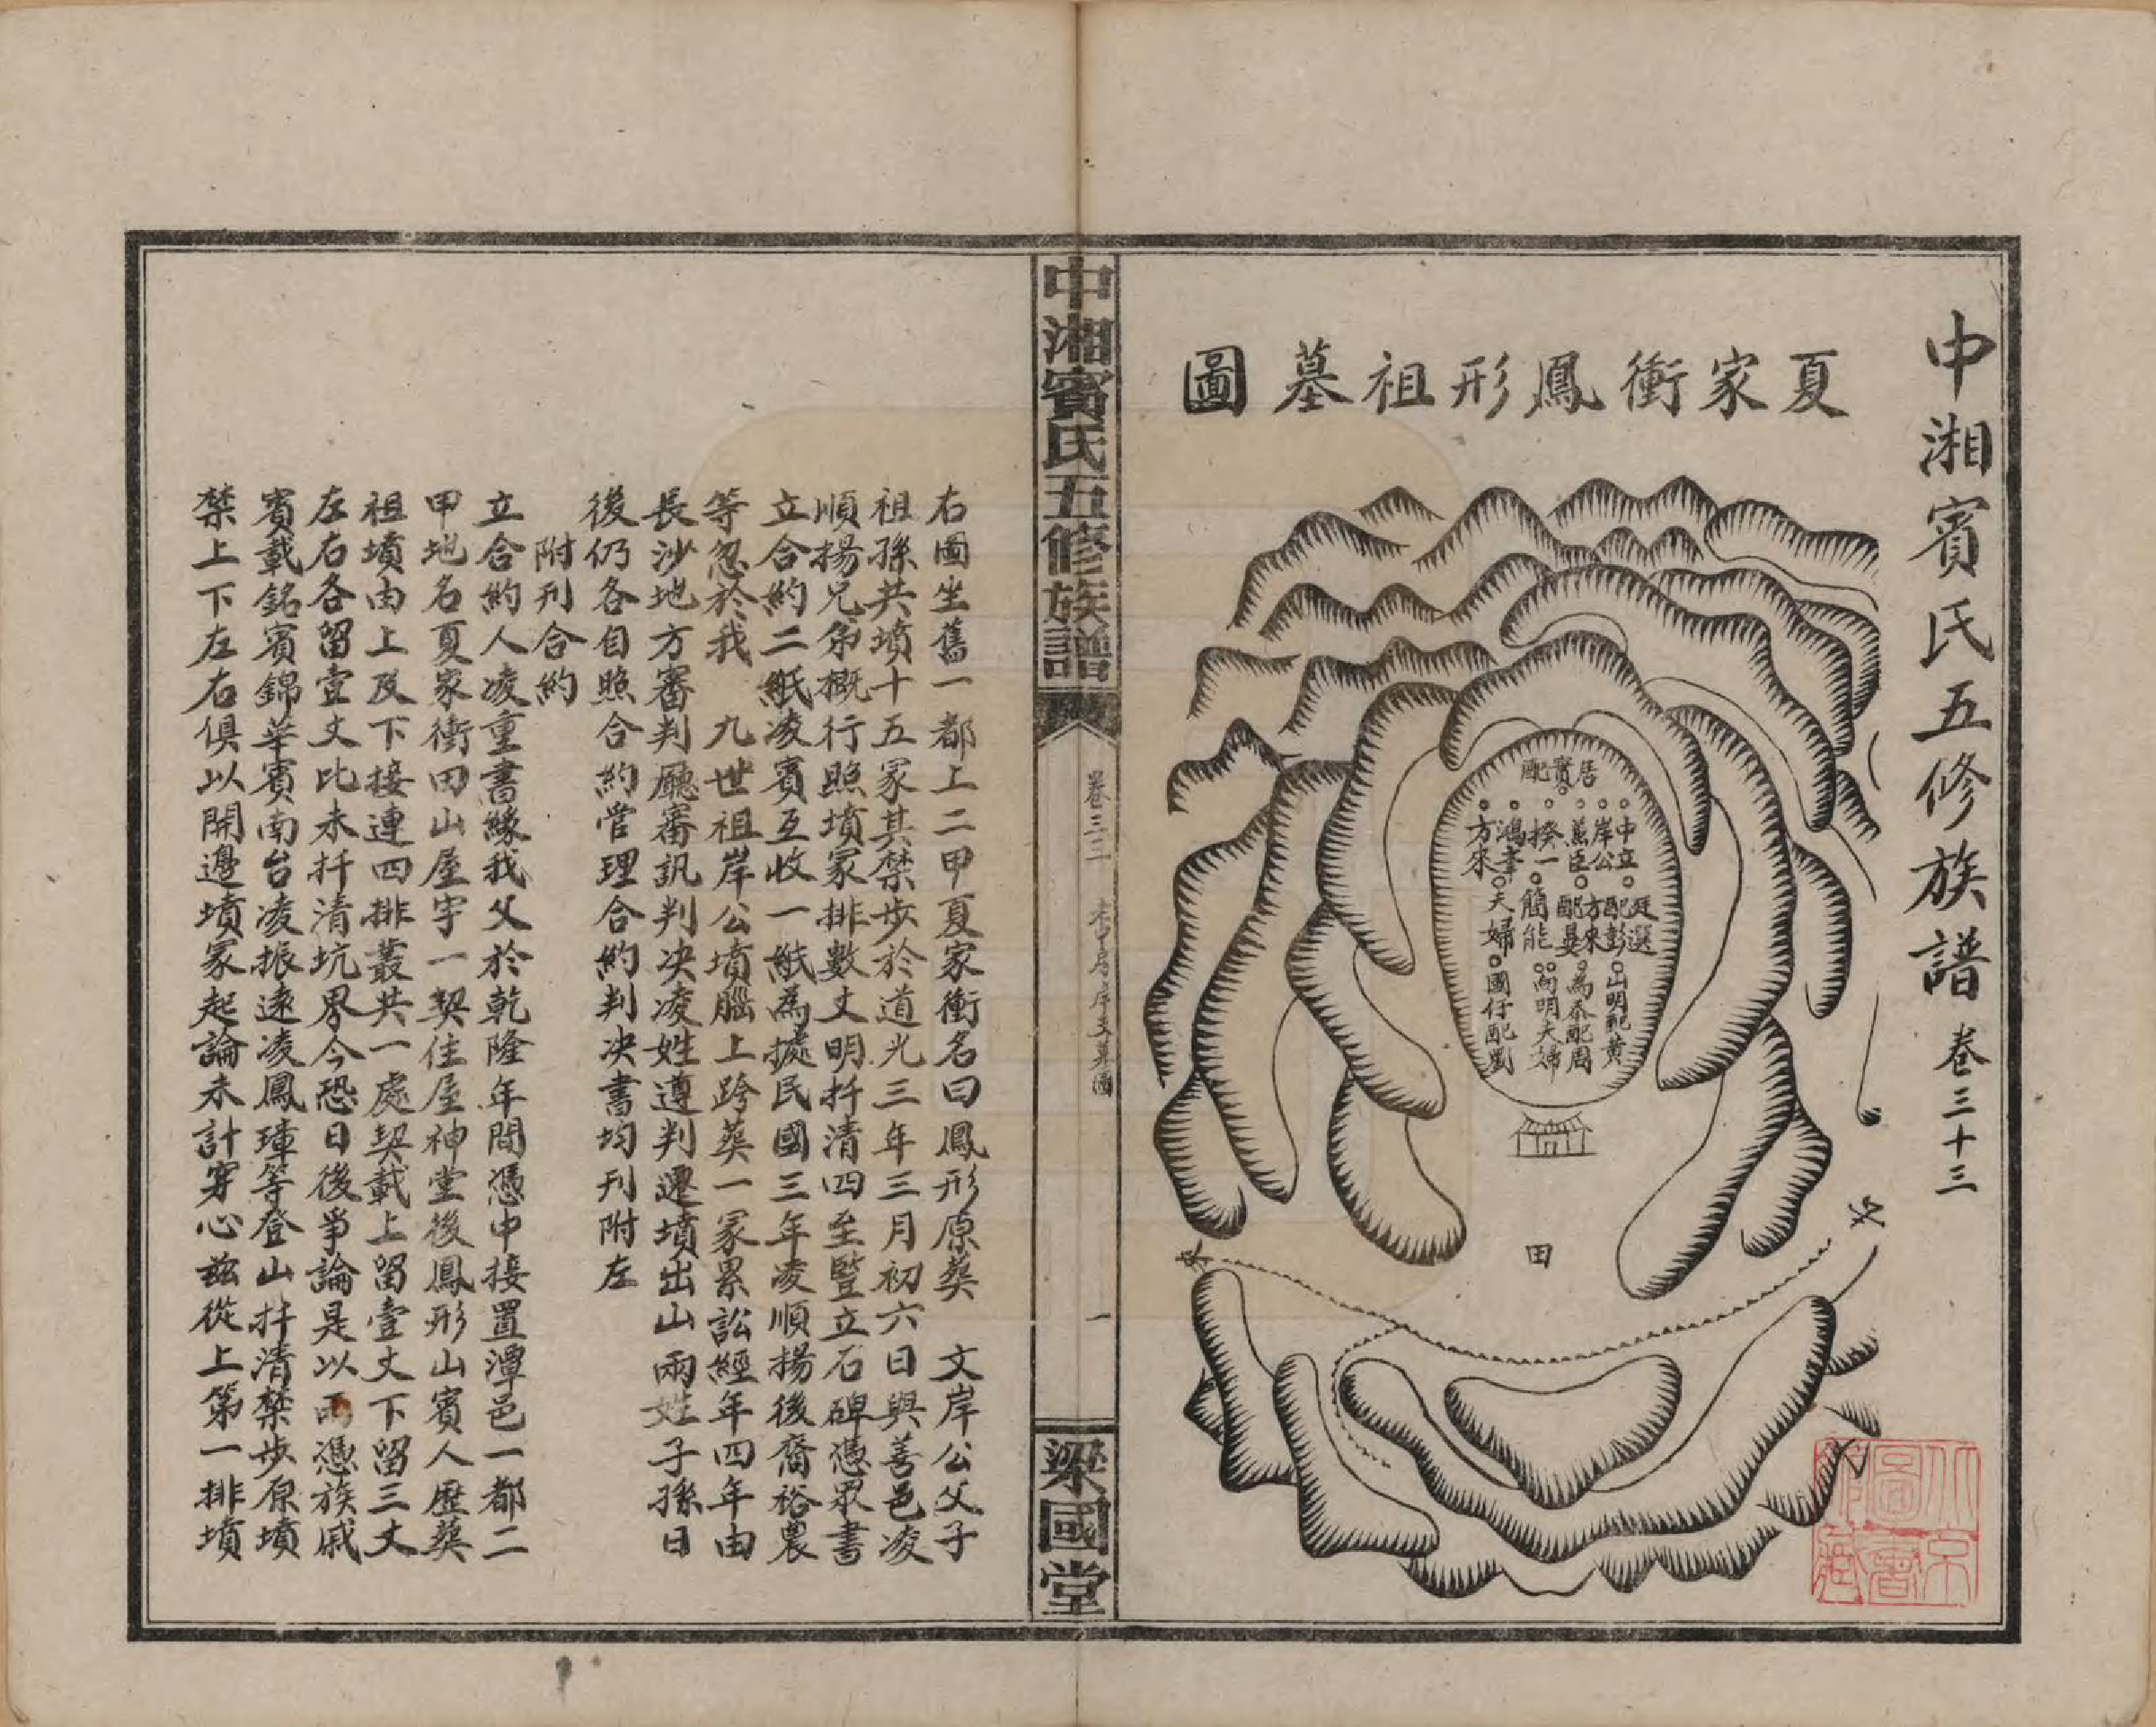 中湘賓氏五修族譜 卷三十三
夏家衝鳳形祖墓圖
居賓配
中立
岸公
蕙臣
揆一
鴻聿
方來
廷選
配彭
方來
配晏
簡能
夫婦
山明配黃
為泰配周
向明夫婦
國仔配劉
田
中湘賓氏五修族譜
卷三三
一
梁國堂
右圖坐舊一都上二甲夏家衝名曰鳳形原葬 文岸公父子
祖孫共墳十五冢其禁步於道光三年三月初六日與善邑凌
順揚兄弟概行照墳冢排數丈明扦清四至豎立石碑憑眾書
立合約二紙凌賓互收一紙為據民國三年凌順揚後裔裕農
等忽於我 九世祖岸公墳腦上跨葬一冢累訟經年四年由
長沙地方審判廳審訊判决凌姓遵判遷墳出山兩姓子孫日
後仍各自照合約管理合約判决書均刊附左
附刊合約
立合約人凌重書緣我父於乾隆年間憑中接置潭邑一都二
甲地名夏家衝田山屋宇一契住屋神堂後鳳形山賓人歷葬
祖墳由上及下接連四排叢共一處契載上留壹丈下留三丈
左右各留壹丈比未扦清坑界今恐日後爭論是以兩憑族戚
賓載銘賓錦華賓南台凌振遠凌鳳璋等登山扦清禁步原墳
禁上下左右俱以開邊墳冢起論未計穿心茲從上第一排墳